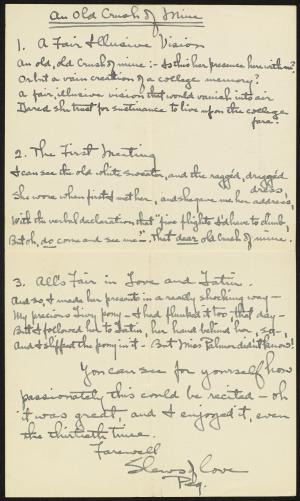 An Old Crush of Mine
1. A Fair Illusive Vision
An old, old Crush of mine:- Is this her presence here with m?
Or but a vain creation of a college memory?
A fair, illusive vision that would vanish into air
Dared she trust for sustinance to live upon the college
fare!
2. The First Meeting
I can see the old white sweater, and the ragged, dragged
dress,
She wore when first I met her, and she gave me her address,
With the verbal declaration, that "five flights I'd have to climb,
But oh, do come and see me" - That dear old Crush of mine.
3. All's Fair in Love and Latin.
And so, I made her presents in a really shocking way -
My precious Livy pony - I had flunked it too, that day -
But I followed her to Latin, her hand behind her, so -
And I slipped the pony in it - But Miss Palmer didn't know!
You can see for yourself how
passionately this could be recited - oh
it was great, and I enjoyed it, even
the thirtieth time.
Farewell
Slews of love
Peg.